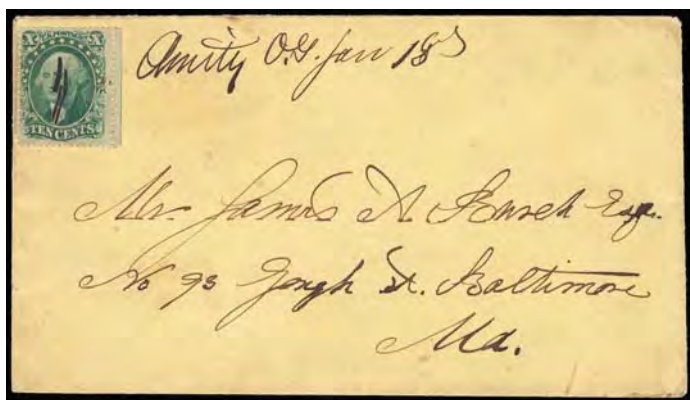 X X
TEN CENTS
Amity O.T. Jan 18
Mr. James A Busch Esqr.
No 93 Gough St. Baltimore
Md.